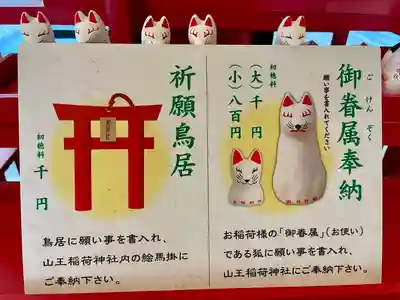 ごけんぞく
御眷属奉納
願い事を書入れてください
初穂料
(大)千円
(小)八百円
お稲荷様の「御眷属」(お使い)
である狐に願い事を書入れ、
山王稲荷神社にご奉納下さい。
祈願鳥居
初穂料
千円
鳥居に願い事を書入れ、
山王稲荷神社内の絵馬掛に
ご奉納下さい。